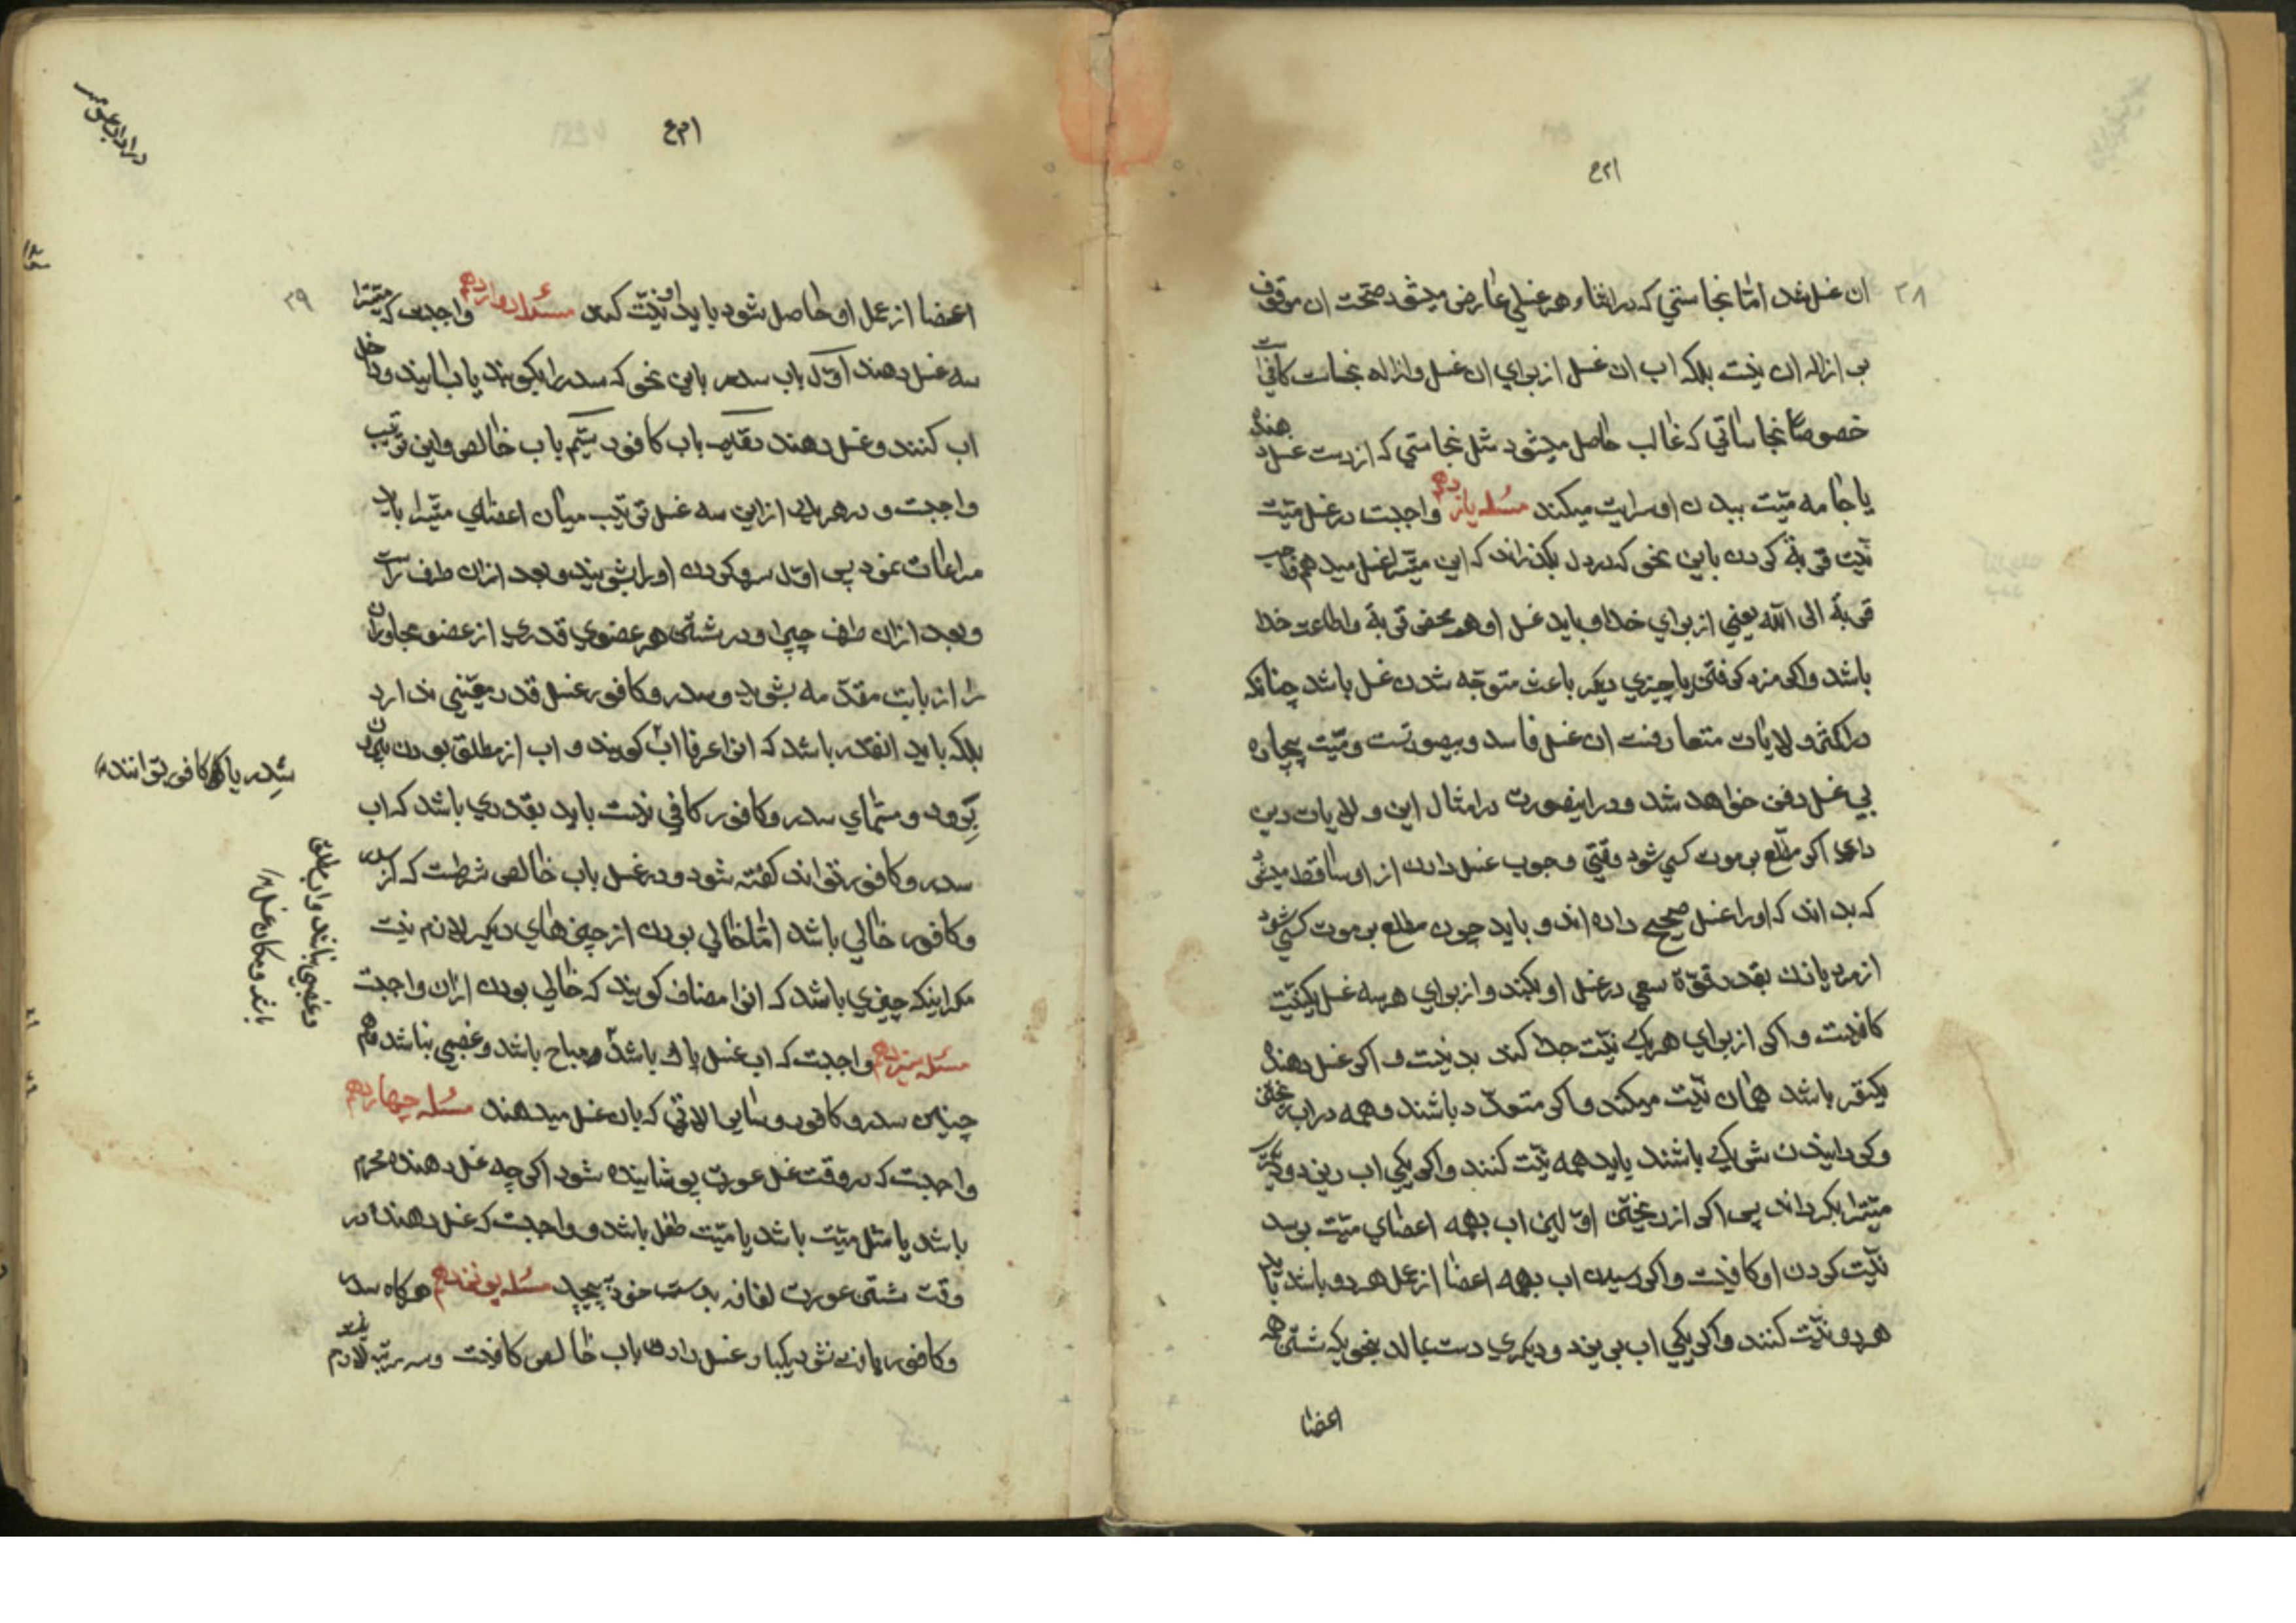 ۳۸
ان غسل شد اما نجاستي که در اثناء هر غسلي عارض میشود صحّت ان موقوف
بر ازاله ان نیست بلکه اب ان غسل از براي ان غسل و ازاله نجاست کافیست
خصوصاً نجاساتي که غالب حاصل میشود مثل نجاستي که از دست غسل دهنده
یا جامه میّت ببدن او سرایت میکند مسئله یازدهم واجبست در غسل میّت
نیّت قربة کردن باین نحو که در دل بکذراند که این میّترا غسل میدهم واجب
قربة الی الله یعني از براي خدا و باید غسل او محض قربة و اطاعت خدا
باشد و اکر مزد کرفتن یا چیزي دیکر باعث متوجّه شدن غسل باشد چنانکه
در اکثر ولایات متعارفست ان غسل فاسد و بیصورتست و میّت بیچاره
بي غسل دفن خواهد شد و در اینصورت در امثال این ولایات دین
داري اکر مطّلع بر موت کسي شود وقتي وجوب غسل دادن از او ساقط میشود
که بداند که اورا غسل صحیح داده اند و باید چون مطلع بر موت کسي شود
از مرد یا زن بقدر قوّة سعي در غسل او بکند و از براي هر سه غسل یکنیّت
کافیست و اکر از براي هر یک نیّت جدا کند بد نیست و اکر غسل دهنده
یکنفر باشد همان نیّت میکند و اکر متعدّد باشند و همه در اب ریختن
و کردانیدن شریک باشند باید همه نیّت کنند و اکر یکي اب ریزد و دیکري
میّترا بکرداند پس اکر از ریختن اوّلین اب بهمه اعضاي میّت برسد
نیّت کردن او کافیست و اکر رسیدن اب بهمه اعضا از عمل هر دو باشد باید
هر دو نیّت کنند و اکر یکي اب بریزد و دیکري دست بمالد بنحوي که شستن همه
اعضا
۳۹
اعضا از عمل او حاصل شود باید او نیّت کند مسئله دوازدهم واجبست که میّترا
سه غسل دهند اوّل باب سدر باین نحو که سدر را بکوبند یا بسایند و داخل
اب کنند و غسل دهند دیکر باب کافور سیّم باب خالص و این ترتیب
واجبست و در هر یک از این سه غسل ترتیب میان اعضاي میّترا باید
مراعات نمود پس اوّل سر و کردن اورا بشویند و بعد از ان طرف راست
و بعد از ان طرف چپرا و در شستن هر عضوي قدري از عضو مجاور ان
را از بابت مقدّمه بشوید و سدر و کافور غسل قدر معیّني ندارد
بلکه باید انقدر باشد که انرا عرفا اب کویند و اب از مطلق بودن بیرون
نرود و مسمّاي سدر و کافور کافي نیست باید بقدري باشد که اب
سدر و کافور تواند کفته شود و در غسل باب خالص شرطست که از سدر
و کافور خالي باشد امّا خالي بودن از چیزهاي دیکر لازم نیست
مکر اینکه چیزي باشد که انرا مضاف کویند که خالي بودن از ان واجبست
مسئله سیزدهم واجبست که اب غسل پاک باشد و مباح باشد و غصبي نباشد و هم
چنین سدر و کافور و سایر الاتي که بان غسل میدهند مسئله چهاردهم
واجبست که در وقت غسل عورت پوشانیده شود اکر چه غسل دهنده محرم
باشد یا مثل میّت باشد یا میّت طفل باشد و واجبست که غسل دهنده در
وقت شستن عورت لفافه بدست خود پیچد مسئله پونزدهم هرکاه سدر
و کافور یافت نشود یکبار غسل دادن باب خالص کافیست و سه مرتبه لازم
سدر یا کافور توانند
و غصبي نباشد و اب مطلق
باشد و مکان غسل